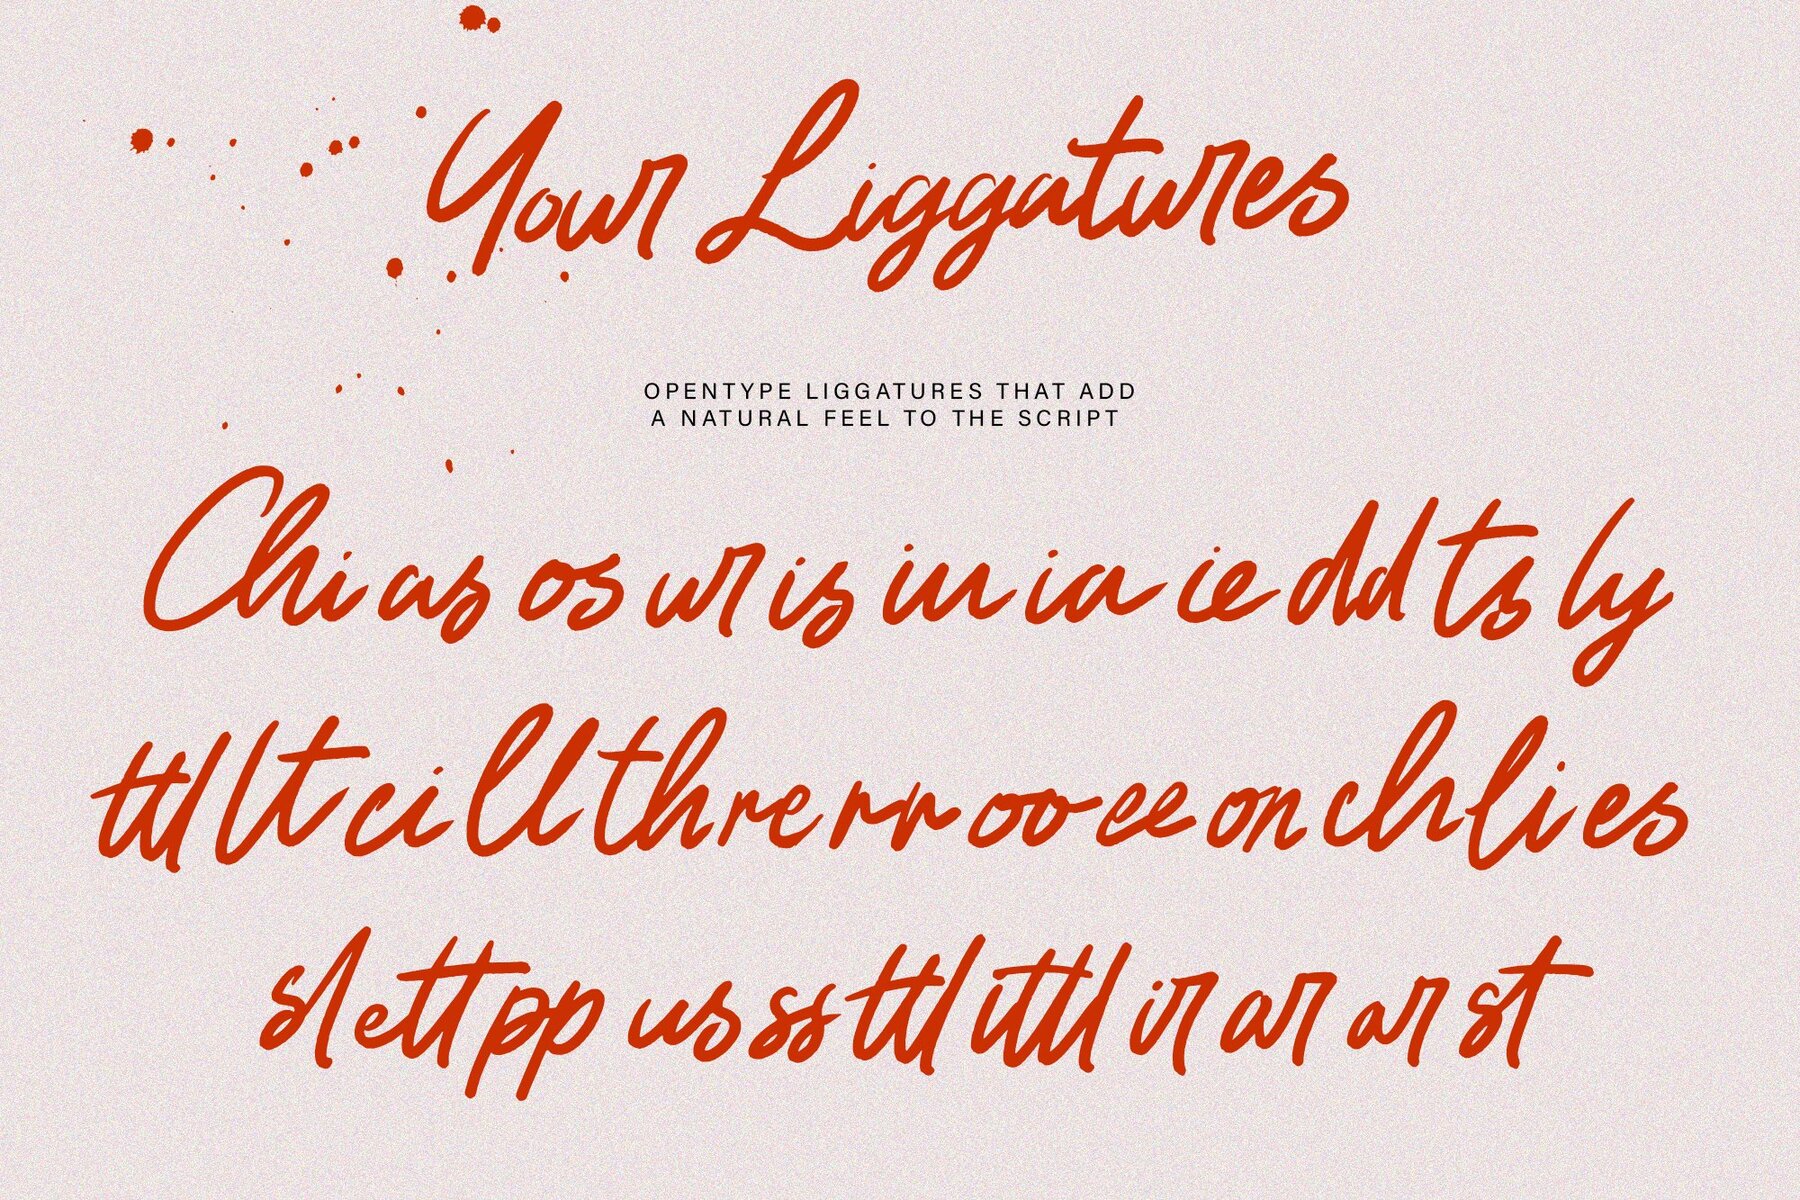 Your Liggatures
OPENTYPE LIGGATURES THAT ADD
A NATURAL FEEL TO THE SCRIPT
Chi as os ur is in ia ie dd ts ly
ttl lt ci ll th re rr oo ee on ch li es
sl ett pp us ss ttl ittl ir ar ar st